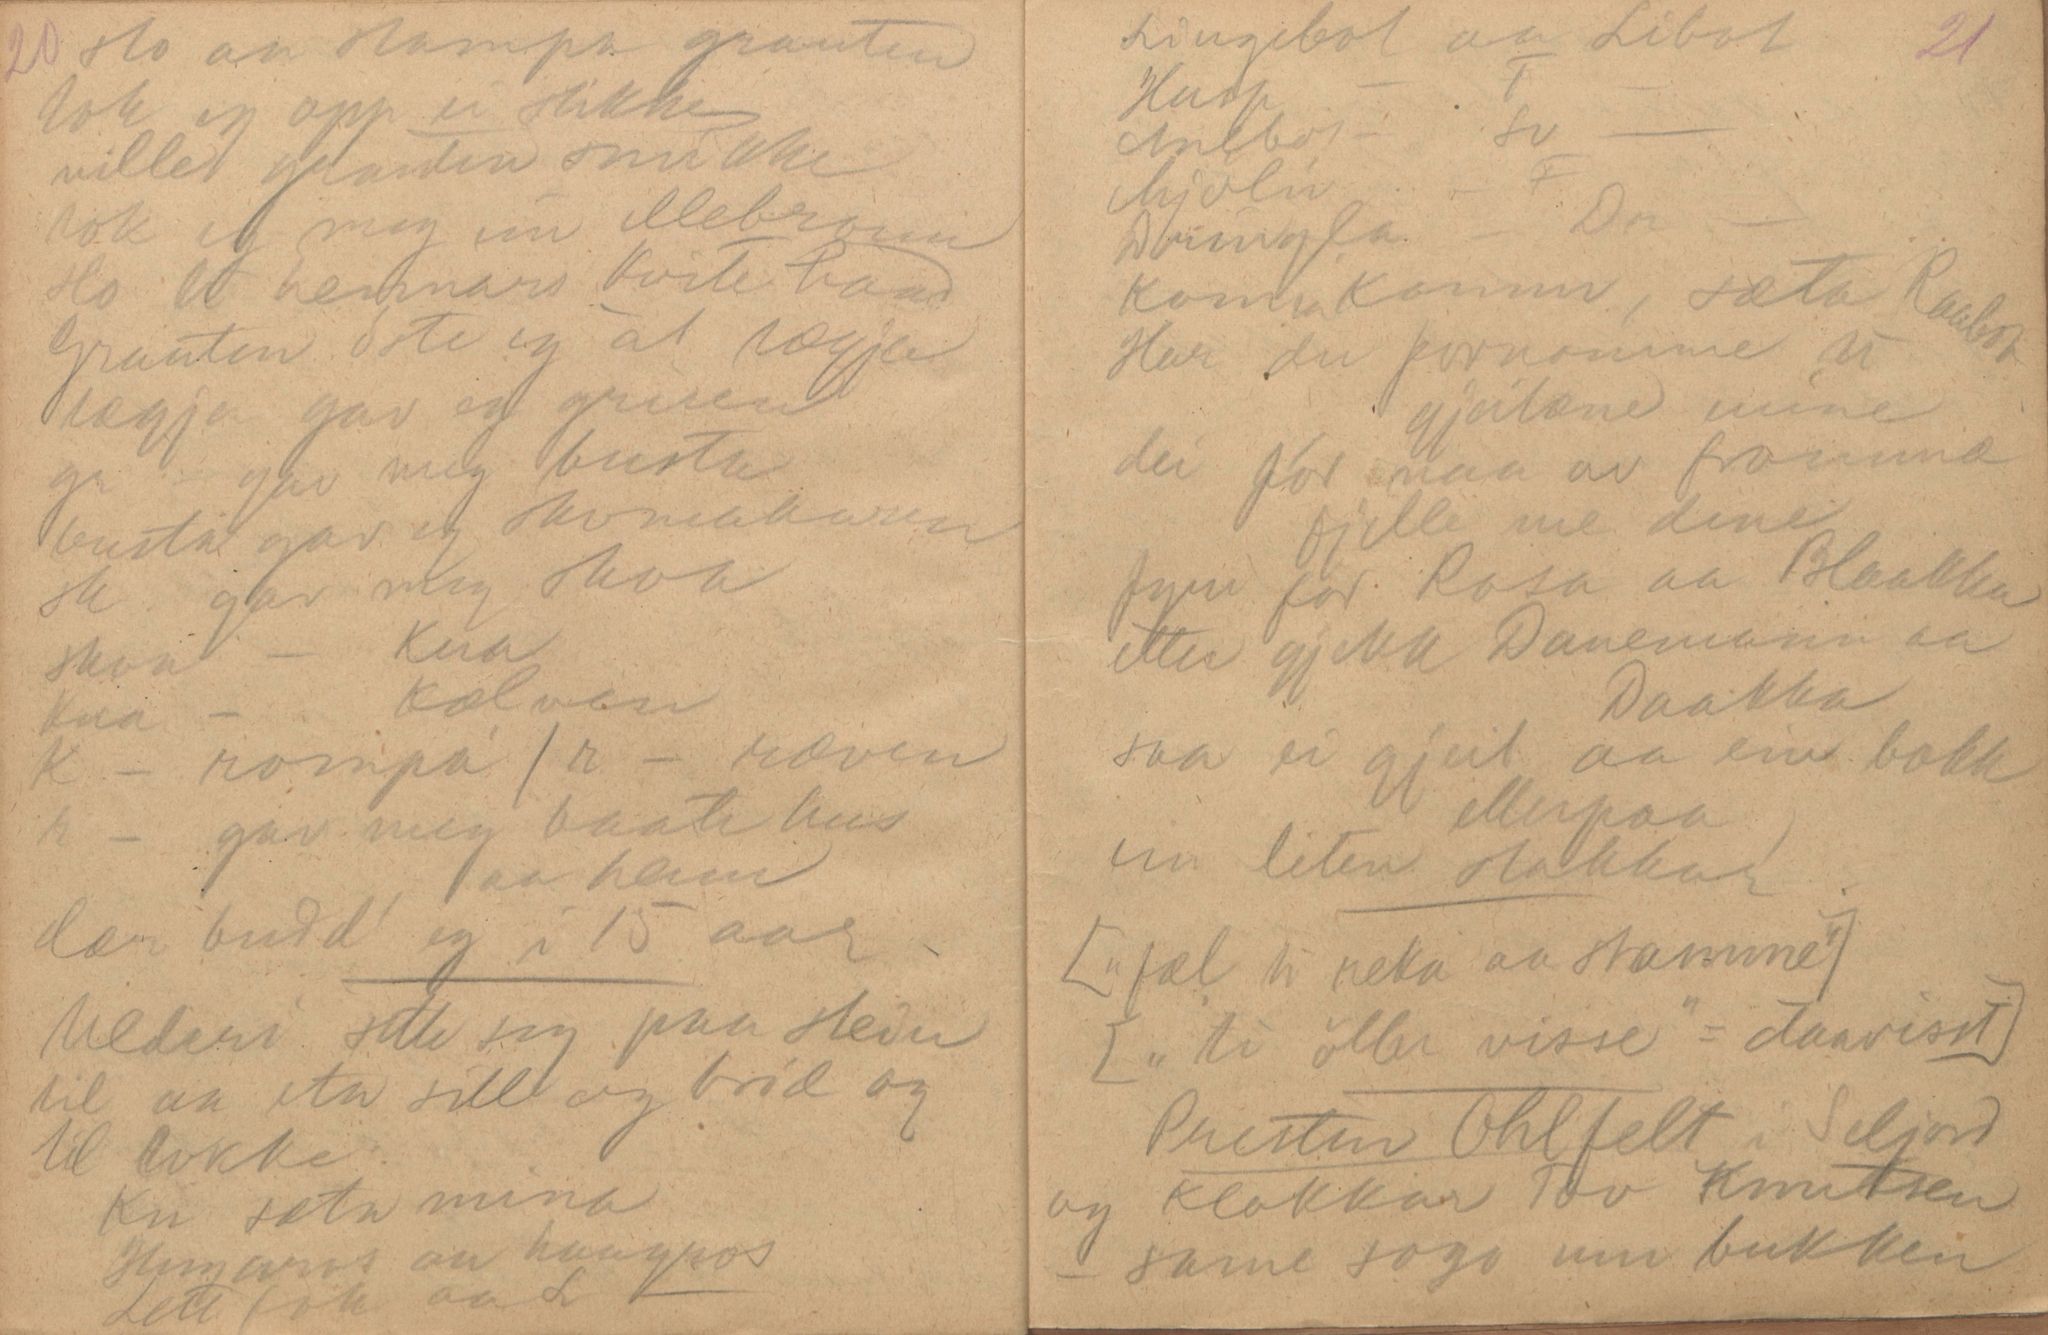 20
sto aa stampa grauten
tok eg opp ei stikke
ville grauten smikke
tok eg meg ein ellebrann
slo te hennars kvite tann
Grauten öste eg at tægje
tægja gav eg grisen
gr - gav meg busta
busta gav eg skomakaren
sk gav meg skoa
skoa - kua
kua - kælven
K - rompa / r - ræven
r - gav meg baate hus
aa heim
dær budd' eg i 15 aar
sette seg paa steine
til aa eta sill og bröd og
til lokke
Ku sæta mina
aa haagros
Lett aa L
21
Lingebot aa Libot
- F -
- So -
- F
Dringla - Dr -
Koma Konnu, sæta Raabot
Har du fornomme ti
gjeitæne mine
dei for naa av frammæ
fjelle me dine
fyre for Rosa aa Blaakka
etter gjekk Danemann aa
Daakka
saa ei gjeit aa ein bokk
etterpaa
ein liten stakkar
["fæl ti reka aa stamme"]
["ti öller visse" = daavisst]
Presten Ohlfelt i Seljord
og klokkar Tov Knutsen
- same sogo um bukken